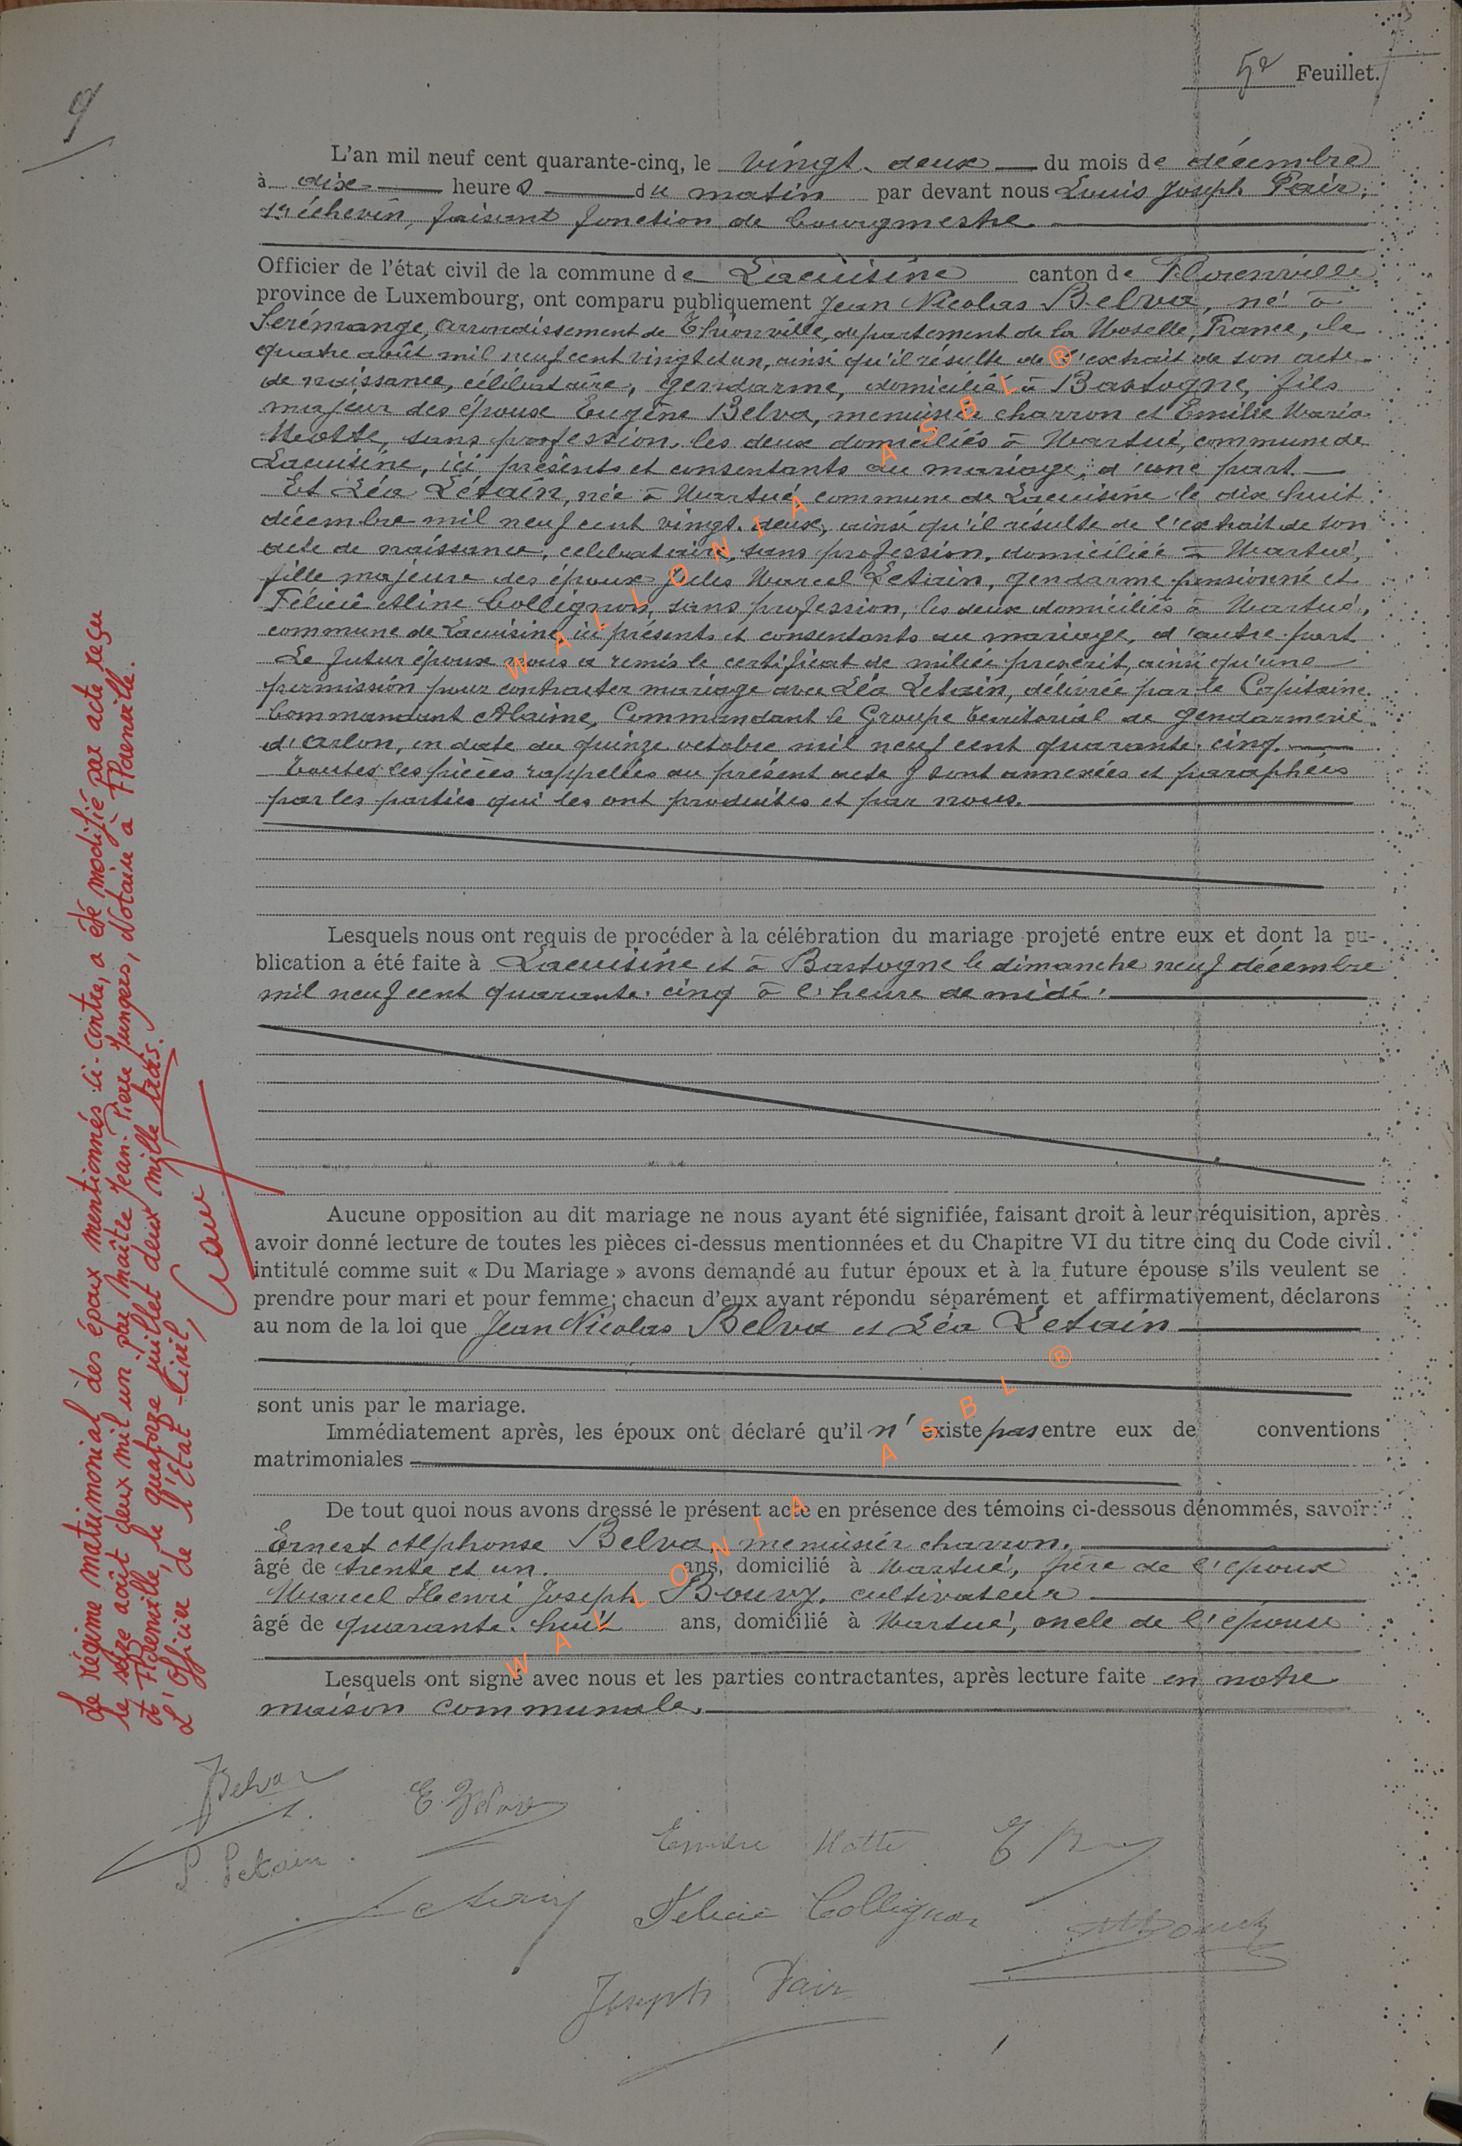 9
5e Feuillet.
L'an mil neuf cent quarante-cinq, le vingt-deux du mois de décembre
à dix heures du matin par devant nous Louis Joseph Pair,
1er échevin, faisant fonction de bourgmestre
Officier de l'état civil de la commune de Lacuisine canton de Florenville
province de Luxembourg, ont comparu publiquement Jean Nicolas Belva, né à
Serémange, arrondissement de Thionville, département de la Moselle, France, le
quatre août mil neuf cent vingt et un, ainsi qu'il résulte de l'extrait de son acte
de naissance, célibataire, gendarme, domicilié à Bastogne, fils
majeur des époux Eugène Belva, menuisier charron et Emilie Maria
Motte, sans profession, les deux domiciliés à Martué, commune de
Lacuisine, ici présents et consentants au mariage, d'une part.
Et Léa Létain, née à Martué commune de Lacuisine le dix huit
décembre mil neuf cent vingt-deux, ainsi qu'il résulte de l'extrait de son
acte de naissance, célibataire, sans profession, domiciliée à Martué,
fille majeure des époux Jules Marcel Letain, gendarme pensionné et
Félicie Aline Collignon, sans profession, les deux domiciliés à Martué,
commune de Lacuisine, ici présents et consentants au mariage, d'autre part
Le futur époux nous a remis le certificat de milice prescrit, ainsi qu'une
permission pour contracter mariage avec Léa Letain, délivrée par le Capitaine
Commandant Alaime, Commandant le Groupe territorial de gendarmerie
d'Arlon, en date du quinze octobre mil neuf cent quarante-cinq.
Toutes les pièces rappelées au présent acte y sont annexées et paraphées
par les parties qui les ont produites et par nous.
Lesquels nous ont requis de procéder à la célébration du mariage projeté entre eux et dont la pu-
blication a été faite à Lacuisine et à Bastogne le dimanche neuf décembre
mil neuf cent quarante-cinq à l'heure de midi.
Aucune opposition au dit mariage ne nous ayant été signifiée, faisant droit à leur réquisition, après
avoir donné lecture de toutes les pièces ci-dessus mentionnées et du Chapitre VI du titre cinq du Code civil
intitulé comme suit « Du Mariage » avons demandé au futur époux et à la future épouse s'ils veulent se
prendre pour mari et pour femme; chacun d'eux ayant répondu séparément et affirmativement, déclarons
au nom de la loi que Jean Nicolas Belva et Léa Letain
sont unis par le mariage.
Immédiatement après, les époux ont déclaré qu'il n'existe pas entre eux de conventions
matrimoniales
De tout quoi nous avons dressé le présent acte en présence des témoins ci-dessous dénommés, savoir:
Ernest Alphonse Belva, menuisier charron,
âgé de trente et un. ans, domicilié à Martué, frère de l'époux
Marcel Henri Joseph Bouvy, cultivateur
âgé de quarante-huit ans, domicilié à Martué, oncle de l'épouse
Lesquels ont signé avec nous et les parties contractantes, après lecture faite en notre
maison communale.
Le régime matrimonial des époux mentionnés ci-contre, a été modifié par acte reçu
le seize août deux mil un par Maître Jean-Pierre Jungers, Notaire à Florenville.
à Florenville, le quatorze juillet deux mille trois.
L'Officier de l'Etat-Civil,
Belva
E. Belva
L. Letain
Emilie Motte
Letain
Félicie Collignon
Joseph Pair
WALLONIA ASBL ®
WALLONIA ASBL ®